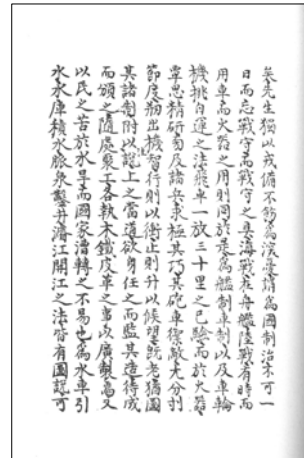 矣先生獨以戎備不飭爲深憂謂爲國制治不可一
日而忘戰守而戰守之具海戰在舟艦陸戰有時而
用車而火器之用則同於是爲艦制車制以及車輪
機挑自運之法飛車一放三十里之已驗而於火器
覃思精研旁及諸兵求極其巧其砲車禦敵尤分刌
節度剏出機智行則以衝止則升以候望旣老猶圖
其諸制附以說上之當道欲身任之而監其造待成
而頒之隨處聚工各執木鐵皮革之事以廣製焉又
以民之苦於水旱而國家漕轉之不易也爲水車引
水水庫積水脉泉鑿井濬江開江之法皆有圖說可